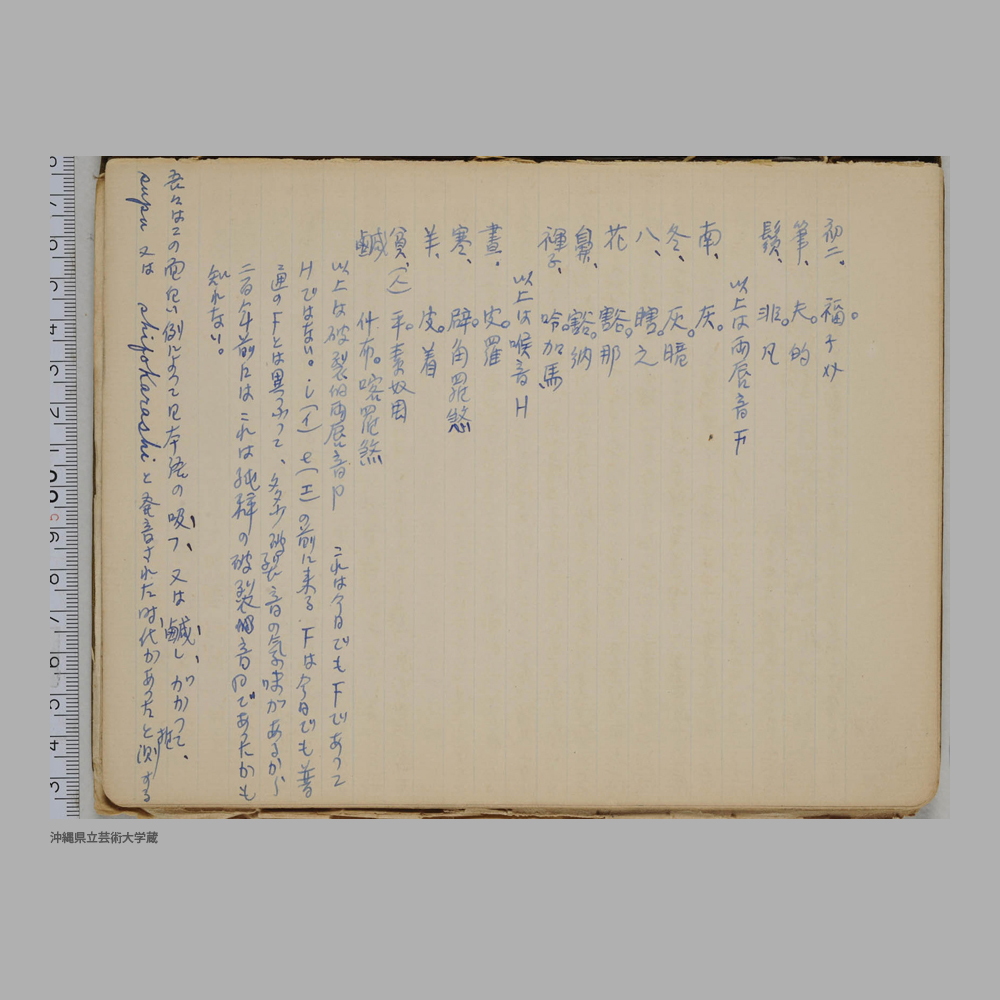 初二、 福。子 々
筆、 夫。的
鬚、 非。凡
以上は両唇音F
南、 灰。
冬、 灰。
八、 瞎。之
花 豁。那
鼻、 豁。納
褌子、 哈。加馬
以上は喉音H
晝、 皮。羅
寒、 辟。角羅
羊、 皮。着
貧、(人) 平。素奴周
鹹 什布。喀羅煞
以上は破裂的両唇音p これは今日でもFであって
Hではない。i(イ) e(エ)の前に来るFは今日でも普
通のFとは異って、多少破裂音の氣味があるから
二百年前にはこれは純粋の破裂的音pであったかも
知れない。
吾々はこの面白い例によって日本語の吸フ、又は鹹し、がかつて、
supu 又は shipokarashi と発音された時代があったと推測する
沖縄県立芸術大学蔵